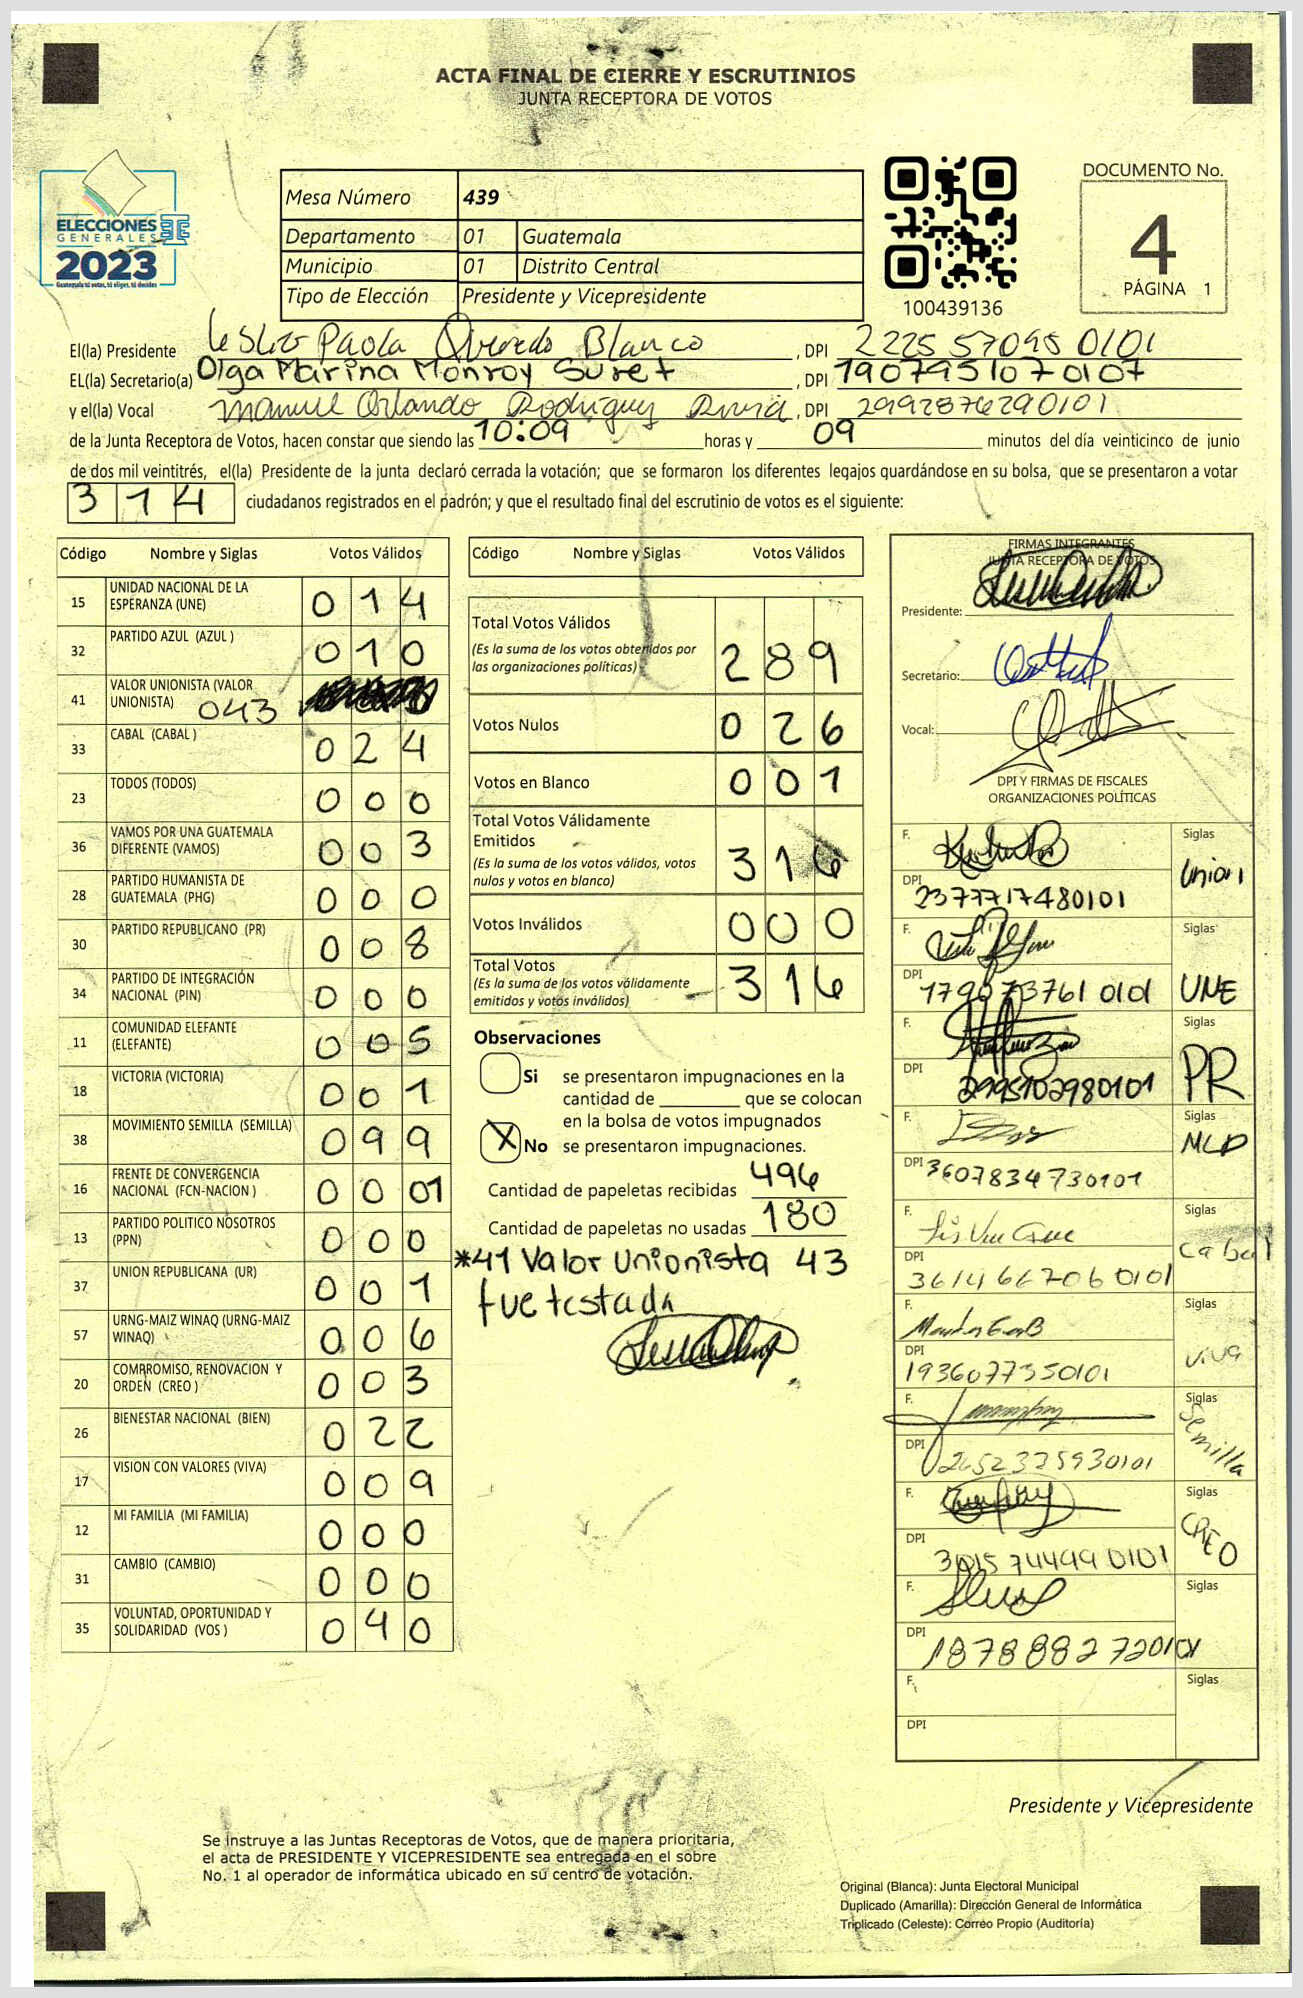 ACTA FINAL DE CIERRE Y ESCRUTINIOS
JUNTA RECEPTORA DE VOTOS
ELECCIONES
GENERALES
2023
Guatemala tú votas, tú eliges, tú decides
Mesa Número 439
Departamento 01 Guatemala
Municipio 01 Distrito Central
Tipo de Elección Presidente y Vicepresidente
100439136
DOCUMENTO No.
4
PÁGINA 1
El(la) Presidente Paola Blanco, DPI 2225 57095 0101
EL(la) Secretario(a) Olga Marina Monroy Suret, DPI 1907951070107
y el(la) Vocal Manuel Orlando Rodriguez, DPI 2992876290101
de la Junta Receptora de Votos, hacen constar que siendo las 10:09 horas y 09 minutos del día veinticinco de junio
de dos mil veintitrés, el(la) Presidente de la junta declaró cerrada la votación; que se formaron los diferentes legajos quardándose en su bolsa, que se presentaron a votar
314 ciudadanos registrados en el padrón; y que el resultado final del escrutinio de votos es el siguiente:
Código Nombre y Siglas Votos Válidos
15 UNIDAD NACIONAL DE LA ESPERANZA (UNE) 014
32 PARTIDO AZUL (AZUL ) 010
41 VALOR UNIONISTA (VALOR UNIONISTA) 043
33 CABAL (CABAL ) 024
23 TODOS (TODOS) 000
36 VAMOS POR UNA GUATEMALA DIFERENTE (VAMOS) 003
28 PARTIDO HUMANISTA DE GUATEMALA (PHG) 000
30 PARTIDO REPUBLICANO (PR) 008
34 PARTIDO DE INTEGRACIÓN NACIONAL (PIN) 000
11 COMUNIDAD ELEFANTE (ELEFANTE) 005
18 VICTORIA (VICTORIA) 001
38 MOVIMIENTO SEMILLA (SEMILLA) 099
16 FRENTE DE CONVERGENCIA NACIONAL (FCN-NACION ) 0001
13 PARTIDO POLITICO NOSOTROS (PPN) 000
37 UNION REPUBLICANA (UR) 001
57 URNG-MAIZ WINAQ (URNG-MAIZ WINAQ) 006
20 COMPROMISO, RENOVACION Y ORDEN (CREO ) 003
26 BIENESTAR NACIONAL (BIEN) 022
17 VISION CON VALORES (VIVA) 009
12 MI FAMILIA (MI FAMILIA) 000
31 CAMBIO (CAMBIO) 000
35 VOLUNTAD, OPORTUNIDAD Y SOLIDARIDAD (VOS ) 040
Código Nombre y Siglas Votos Válidos
Total Votos Válidos 289
(Es la suma de los votos obtenidos por
las organizaciones políticas)
Votos Nulos 026
Votos en Blanco 001
Total Votos Válidamente
Emitidos 316
(Es la suma de los votos válidos, votos
nulos y votos en blanco)
Votos Inválidos 000
Total Votos 316
(Es la suma de los votos válidamente
emitidos y votos inválidos)
Observaciones
Si se presentaron impugnaciones en la
cantidad de ________ que se colocan
en la bolsa de votos impugnados
X No se presentaron impugnaciones.
Cantidad de papeletas recibidas 496
Cantidad de papeletas no usadas 180
*41 Valor Unionista 43
fue testada
FIRMAS INTEGRANTES
JUNTA RECEPTORA DE VOTOS
Presidente:
Secretario:
Vocal:
DPI Y FIRMAS DE FISCALES
ORGANIZACIONES POLÍTICAS
F. Siglas
DPI 2377717480101
F. Siglas UNE
DPI 1790737610101
F. Siglas PR
DPI 2995102980101
F. Siglas MLP
DPI 3607834730101
F. Siglas Cabal
DPI 3614667060101
F. Siglas Viva
DPI 1936077350101
F. Siglas Semilla
DPI 2652375930101
F. Siglas CREO
DPI 3015744490101
F. Siglas
DPI
F. Siglas
DPI
Presidente y Vicepresidente
Se instruye a las Juntas Receptoras de Votos, que de manera prioritaria,
el acta de PRESIDENTE Y VICEPRESIDENTE sea entregada en el sobre
No. 1 al operador de informática ubicado en su centro de votación.
Original (Blanca): Junta Electoral Municipal
Duplicado (Amarilla): Dirección General de Informática
Triplicado (Celeste): Correo Propio (Auditoría)